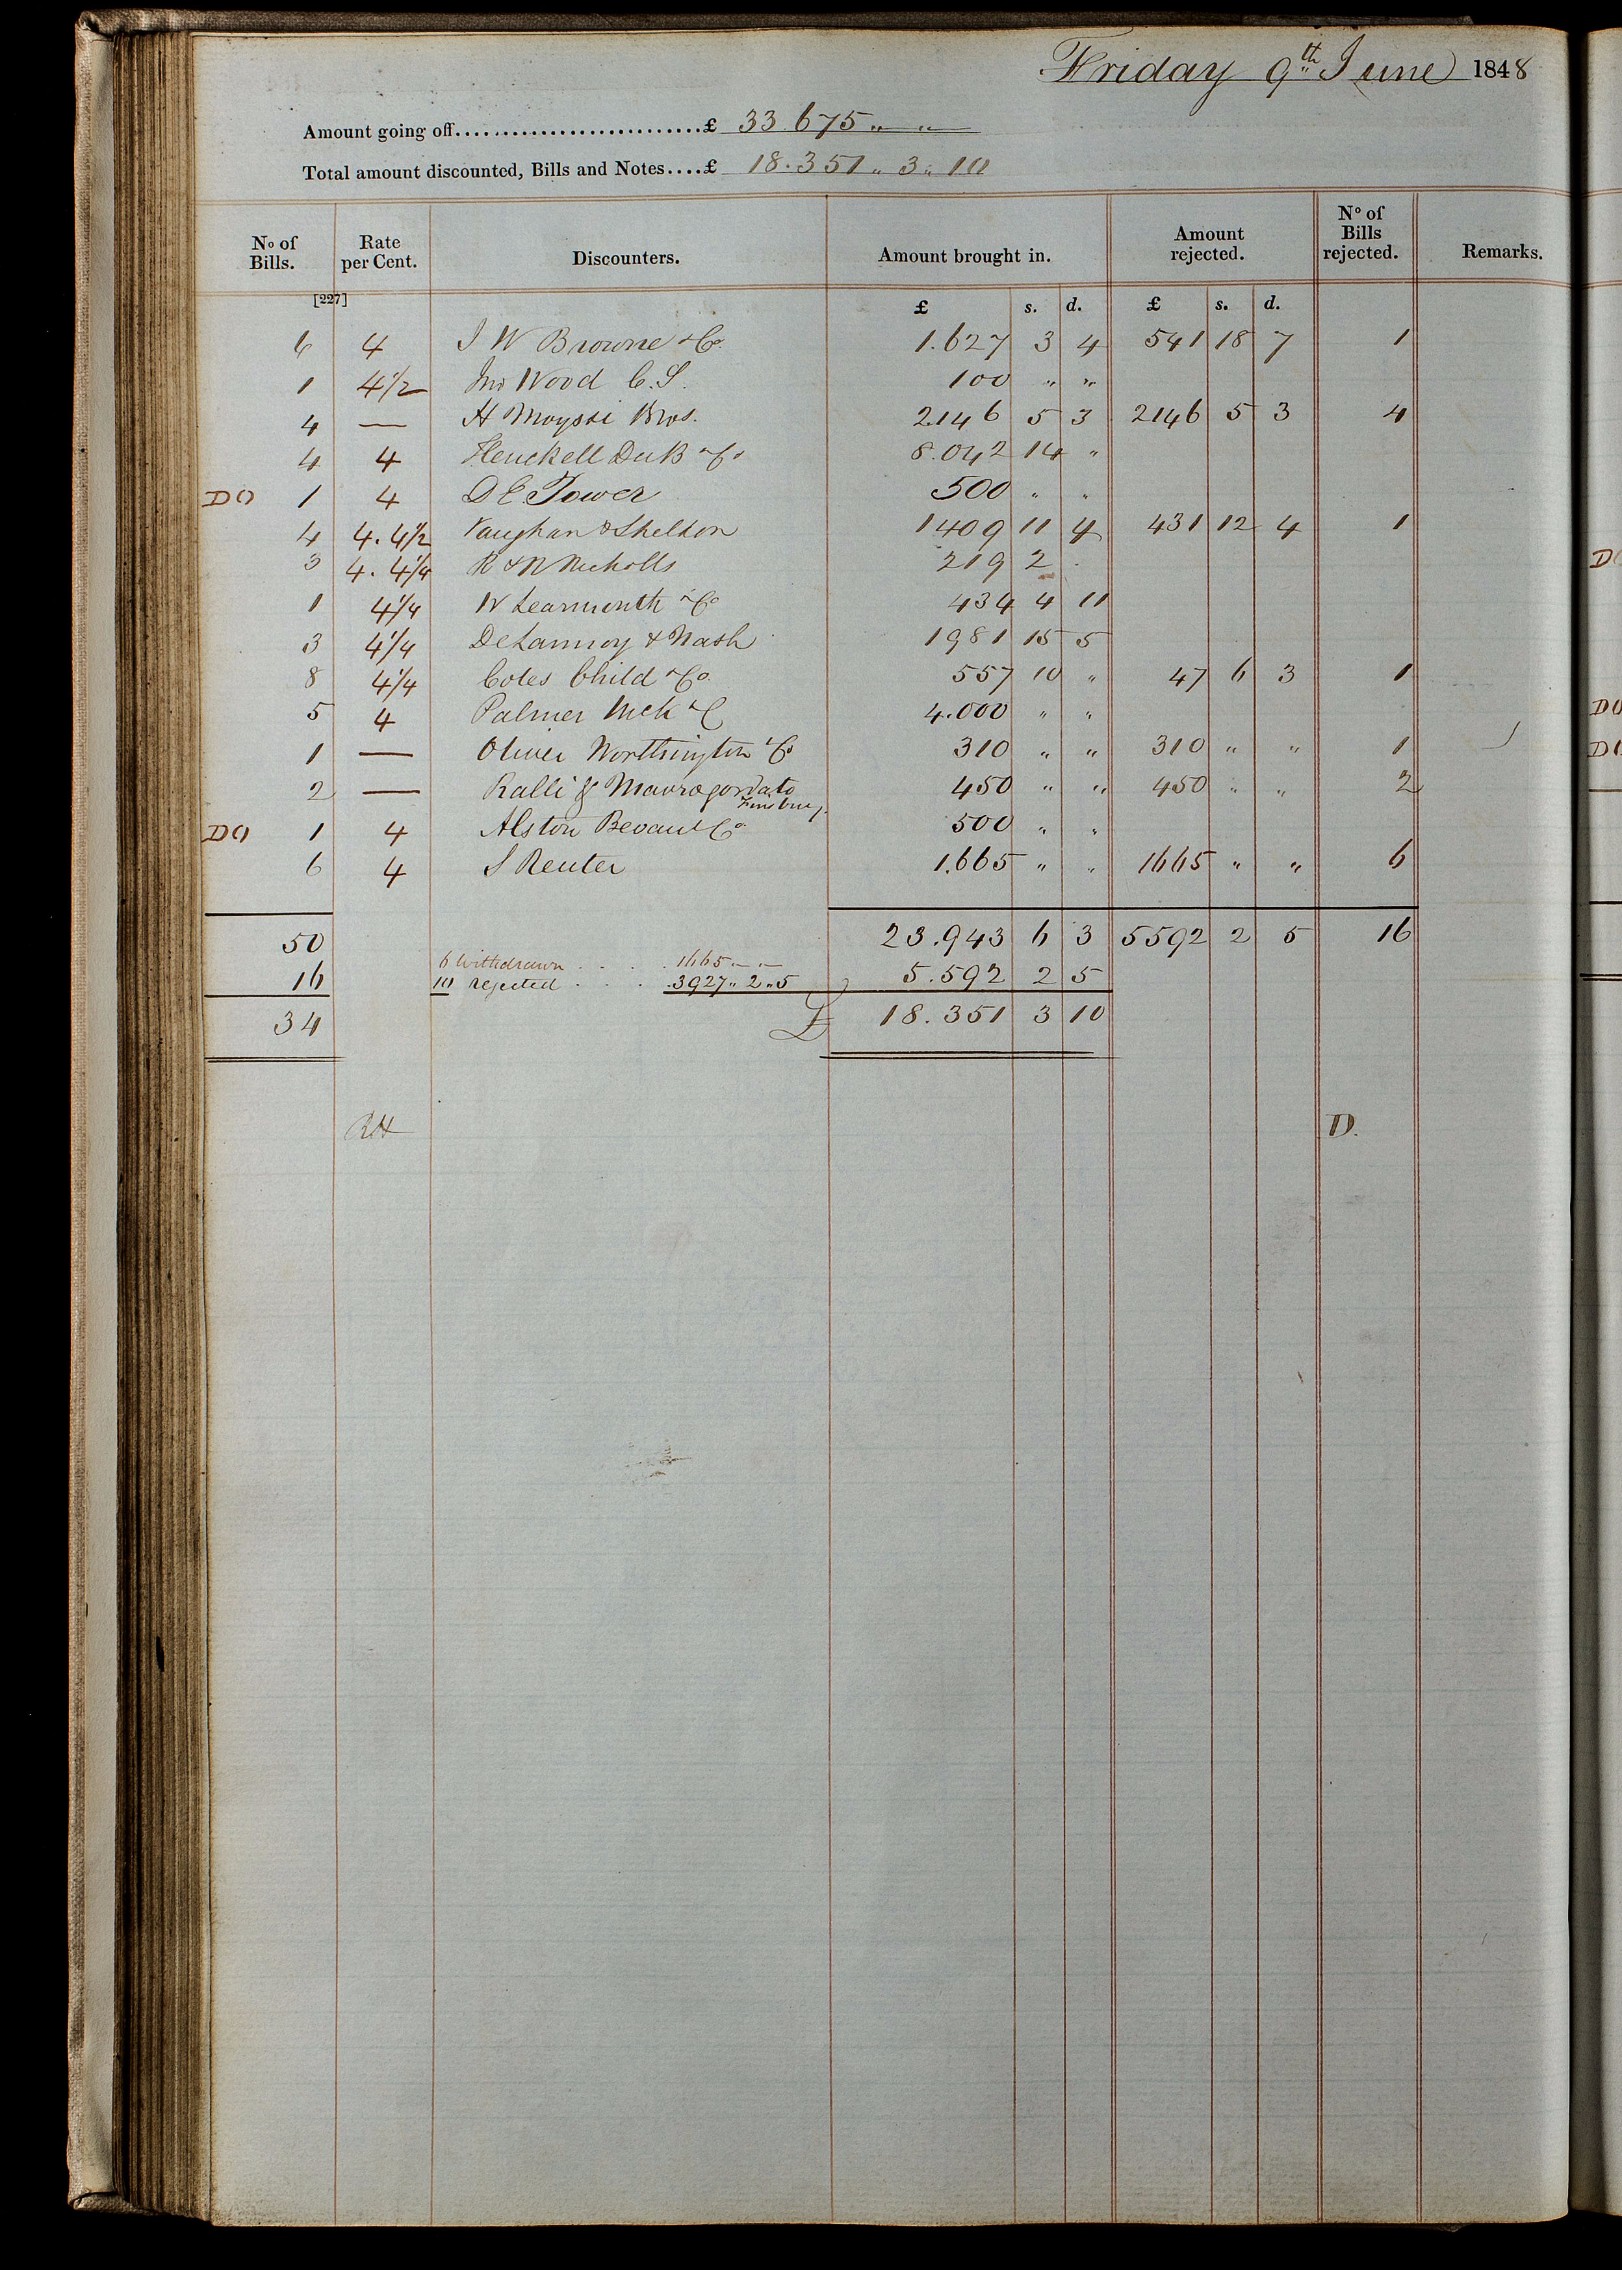 Friday 9th June 1848
Amount going off..........................£ 33.675 „ „
Total amount discounted, Bills and Notes....£ 18.351 „ 3 „ 10
No of Bills. Rate per Cent. Discounters. Amount brought in. Amount rejected. No of Bills rejected. Remarks.
[227] £ s. d. £ s. d.
6 4 J W Browne & Co. 1.627 3 4 541 18 7 1
1 4 1/2 Jno Wood C.S. 100 „ „
4 — H Moyssi Bros. 2146 5 3 2146 5 3 4
4 4 Henckell DuB & Co 8.042 14 „
DO 1 4 D E Tower 500 „ „
4 4. 4 1/2 Vaughan & Sheldon 1409 11 4 431 12 4 1
3 4. 4 1/4 R & N Nicholls 219 2 .
1 4 1/4 W Learmonth & Co 434 4 11
3 4 1/4 DeLannoy & Nash 1981 15 5
8 4 1/4 Coles Child & Co. 557 10 „ 47 6 3 1
5 4 Palmer & C 4.000 „ „
1 — Oliver Worthington & Co 310 „ „ 310 „ „ 1
2 — Ralli & Mavrogordato 450 „ „ 450 „ „ 2
Finsbury
DO 1 4 Alston Bevan & Co 500 „ „
6 4 S Reuter 1.665 „ „ 1665 „ „ 6
50 23.943 6 3 5592 2 5 16
16 6 Withdrawn . . . . 1665 „ — „ — 5.592 2 5
10 rejected . . . . 3927 „ 2 „ 5
34 £ 18.351 3 10
RH D.